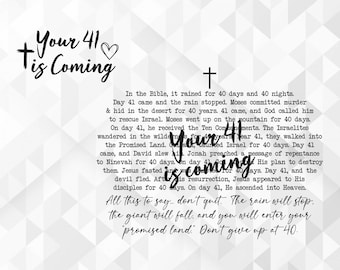 Your 41
is Coming
In the Bible, it rained for 40 days and 40 nights.
Day 41 came and the rain stopped. Moses committed murder
& hid in the desert for 40 years. 41 came and God called him
to rescue Israel. Moses went up on the mountain for 40 days.
On day 41, he received the Ten Commandments. The Israelites
wandered in the wilderness for 40 years. Year 41, they walked into
the Promised Land. Goliath taunted Israel for 40 days. Day 41
came, and David slew him. Jonah preached a message of repentance
to Ninevah for 40 days. On day 41, God stopped His plan to destroy
them. Jesus fasted for 40 days. Day 41 came, and the
devil fled. After His Resurrection, Jesus appeared to His
disciples for 40 days. On day 41, He ascended into Heaven.
Your 41
is coming
All this to say... don't quit. The rain will stop,
the giant will fall, and you will enter your
"promised land." Don't give up at 40.